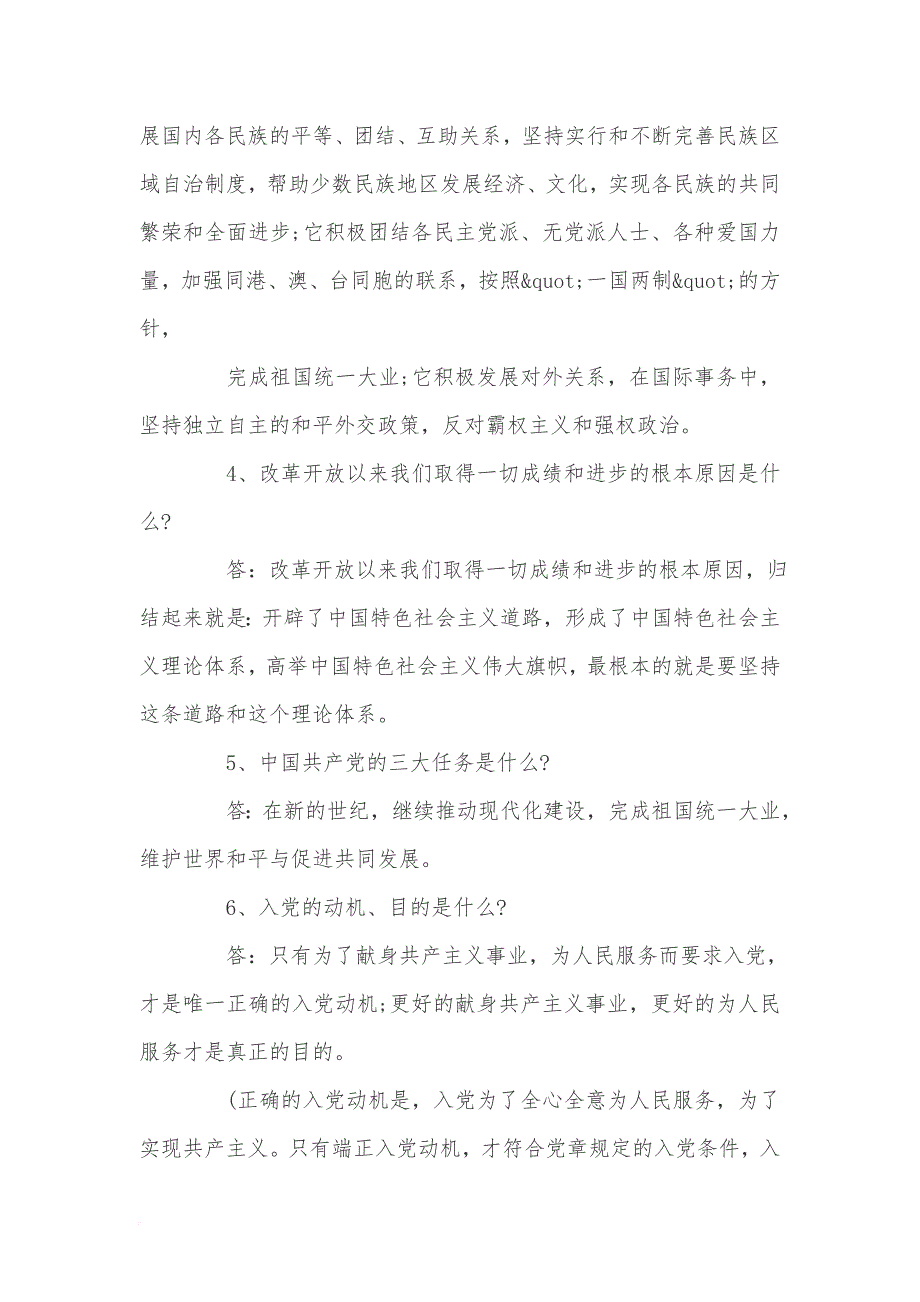 展国内各民族的平等、团结、互助关系，坚持实行和不断完善民族区
域自治制度，帮助少数民族地区发展经济、文化，实现各民族的共同
繁荣和全面进步;它积极团结各民主党派、无党派人士、各种爱国力
量，加强同港、澳、台同胞的联系，按照&quot;一国两制&quot;的方
针，
完成祖国统一大业;它积极发展对外关系，在国际事务中，
坚持独立自主的和平外交政策，反对霸权主义和强权政治。
4、改革开放以来我们取得一切成绩和进步的根本原因是什
么?
答：改革开放以来我们取得一切成绩和进步的根本原因，归
结起来就是：开辟了中国特色社会主义道路，形成了中国特色社会主
义理论体系，高举中国特色社会主义伟大旗帜，最根本的就是要坚持
这条道路和这个理论体系。
5、中国共产党的三大任务是什么?
答：在新的世纪，继续推动现代化建设，完成祖国统一大业，
维护世界和平与促进共同发展。
6、入党的动机、目的是什么?
答：只有为了献身共产主义事业，为人民服务而要求入党，
才是唯一正确的入党动机;更好的献身共产主义事业，更好的为人民
服务才是真正的目的。
(正确的入党动机是，入党为了全心全意为人民服务，为了
实现共产主义。只有端正入党动机，才符合党章规定的入党条件，入